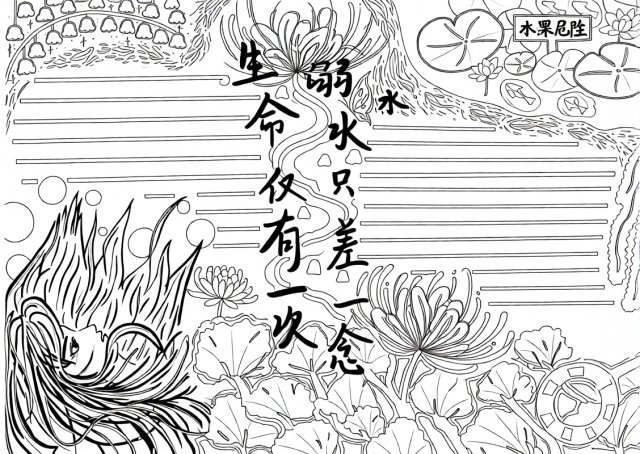 水果
生命仅有一次
弱水只差一念
水